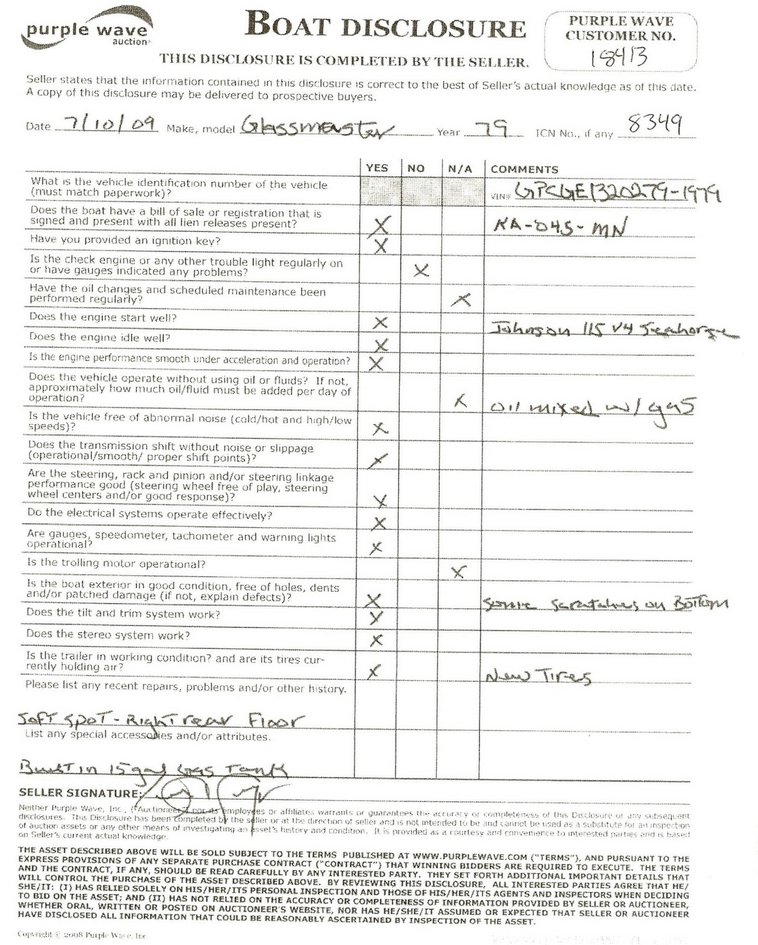 purple wave
auction
BOAT DISCLOSURE
THIS DISCLOSURE IS COMPLETED BY THE SELLER.
PURPLE WAVE
CUSTOMER NO.
18413
Seller states that the information contained in this disclosure is correct to the best of Seller's actual knowledge as of this date.
A copy of this disclosure may be delivered to prospective buyers.
Date 7/10/09 Make, model Glassmenster Year 79 ICN No., if any 8349
YES NO N/A COMMENTS
What is the vehicle identification number of the vehicle
(must match paperwork)? VIN# GPCGE1320279-1979
Does the boat have a bill of sale or registration that is
signed and present with all lien releases present? X KA-045-MN
Have you provided an ignition key? X
Is the check engine or any other trouble light regularly on
or have gauges indicated any problems? X
Have the oil changes and scheduled maintenance been
performed regularly? X
Does the engine start well? X Johnson 115 V4 Seahorse
Does the engine idle well? X
Is the engine performance smooth under acceleration and operation? X
Does the vehicle operate without using oil or fluids? If not,
approximately how much oil/fluid must be added per day of
operation? X oil mixed w/ gas
Is the vehicle free of abnormal noise (cold/hot and high/low
speeds)? X
Does the transmission shift without noise or slippage
(operational/smooth/ proper shift points)? X
Are the steering, rack and pinion and/or steering linkage
performance good (steering wheel free of play, steering
wheel centers and/or good response)? X
Do the electrical systems operate effectively? X
Are gauges, speedometer, tachometer and warning lights
operational? X
Is the trolling motor operational? X
Is the boat exterior in good condition, free of holes, dents
and/or patched damage (if not, explain defects)? X some scratches on Bottom
Does the tilt and trim system work? X
Does the stereo system work? X
Is the trailer in working condition? and are its tires cur-
rently holding air? X New Tires
Please list any recent repairs, problems and/or other history.
Soft spot - Right rear Floor
List any special accessories and/or attributes.
Built in 15 gal Gas Tank
SELLER SIGNATURE:
Neither Purple Wave, Inc., ("Auctioneer") nor its employees or affiliates warrants or guarantees the accuracy or completeness of this Disclosure or any subsequent
disclosures. This Disclosure has been completed by the seller or at the direction of seller and is not intended to be and cannot be used as a substitute for an inspection
of auction assets or any other means of investigating an asset's history and condition. It is provided as a courtesy and convenience to interested parties and is based
on Seller's current actual knowledge.
THE ASSET DESCRIBED ABOVE WILL BE SOLD SUBJECT TO THE TERMS PUBLISHED AT WWW.PURPLEWAVE.COM ("TERMS"), AND PURSUANT TO THE
EXPRESS PROVISIONS OF ANY SEPARATE PURCHASE CONTRACT ("CONTRACT") THAT WINNING BIDDERS ARE REQUIRED TO EXECUTE. THE TERMS
AND THE CONTRACT, IF ANY, SHOULD BE READ CAREFULLY BY ANY INTERESTED PARTY. THEY SET FORTH ADDITIONAL IMPORTANT DETAILS THAT
WILL CONTROL THE PURCHASE OF THE ASSET DESCRIBED ABOVE. BY REVIEWING THIS DISCLOSURE, ALL INTERESTED PARTIES AGREE THAT HE/
SHE/IT: (I) HAS RELIED SOLELY ON HIS/HER/ITS PERSONAL INSPECTION AND THOSE OF HIS/HER/ITS AGENTS AND INSPECTORS WHEN DECIDING
TO BID ON THE ASSET; AND (II) HAS NOT RELIED ON THE ACCURACY OR COMPLETENESS OF INFORMATION PROVIDED BY SELLER OR AUCTIONEER,
WHETHER ORAL, WRITTEN OR POSTED ON AUCTIONEER'S WEBSITE, NOR HAS HE/SHE/IT ASSUMED OR EXPECTED THAT SELLER OR AUCTIONEER
HAVE DISCLOSED ALL INFORMATION THAT COULD BE REASONABLY ASCERTAINED BY INSPECTION OF THE ASSET.
Copyright © 2008 Purple Wave, Inc.